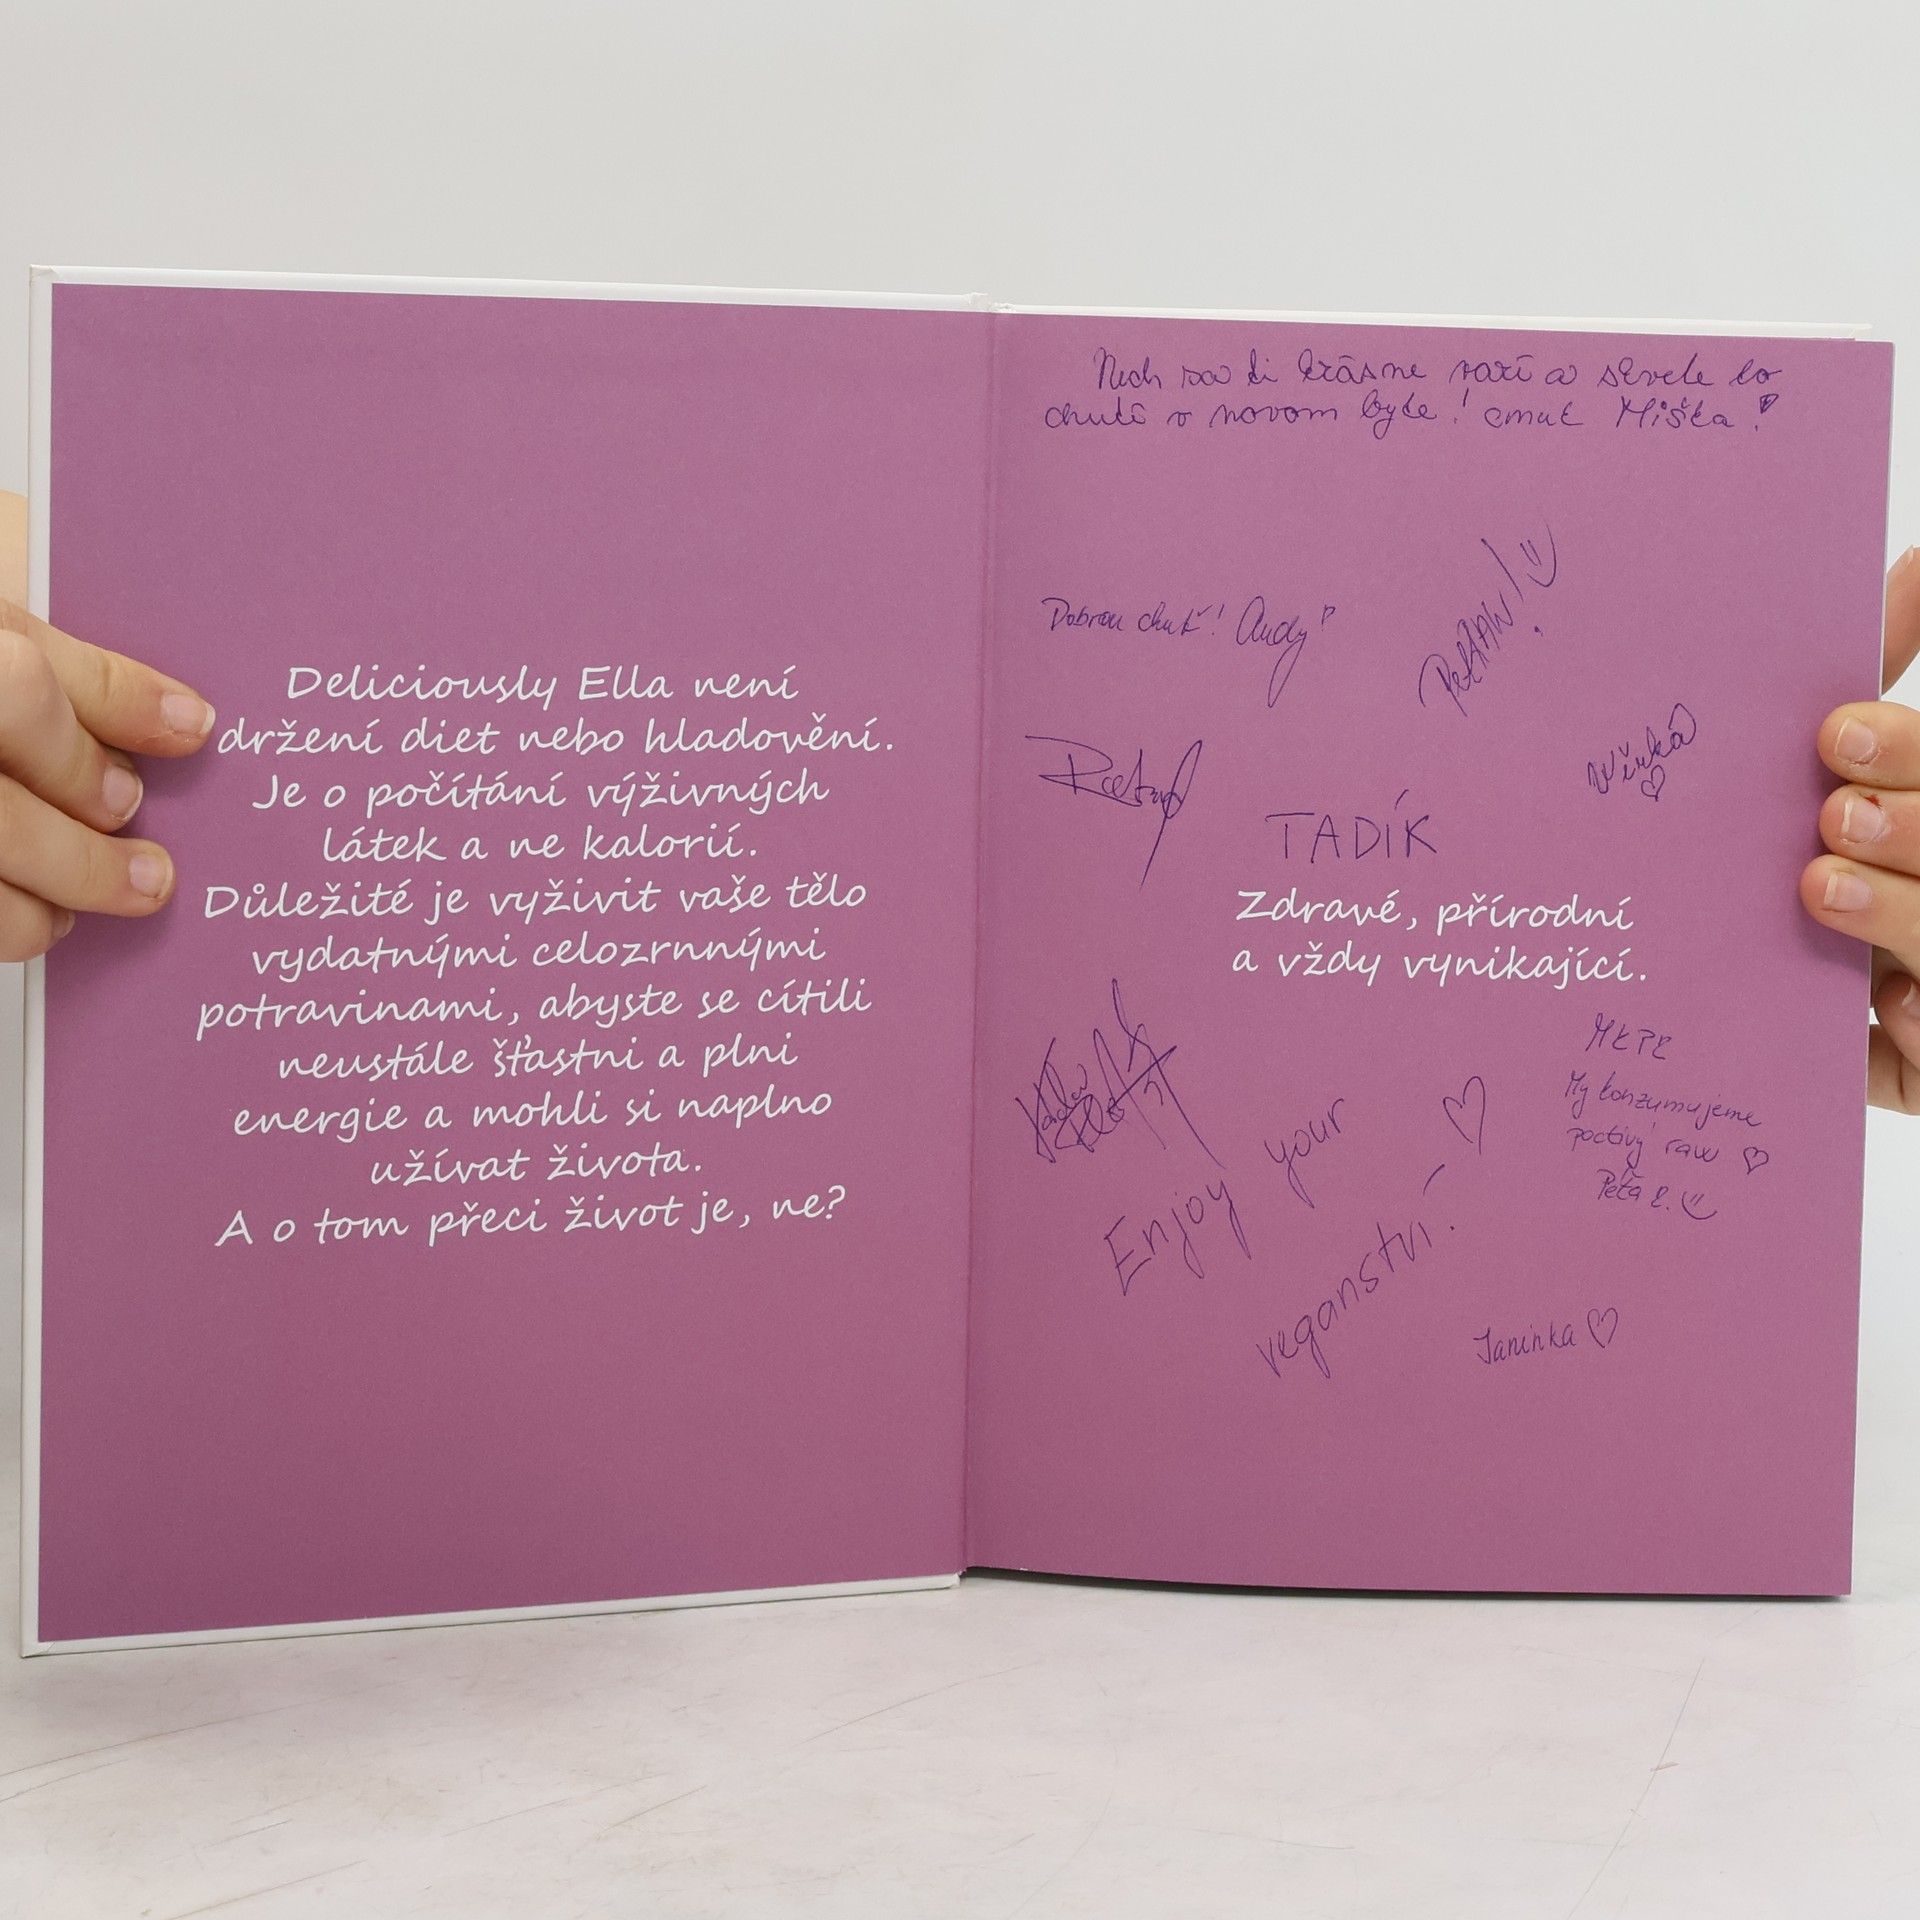 Deliciously Ella není
držení diet nebo hladovění.
Je o počítání výživných
látek a ne kalorií.
Důležité je vyživit vaše tělo
vydatnými celozrnnými
potravinami, abyste se cítili
neustále šťastni a plni
energie a mohli si naplno
užívat života.
A o tom přeci život je, ne?
Nech sa ti krásne varí a skvele to
chutí v novom byte! cmuk Miška!
Dobrou chuť! Andy
TADÍK
Zdravé, přírodní
a vždy vynikající.
My konzumujeme
poctivý raw ♡
Peťa
Enjoy your ♡
veganství!
Janinka ♡